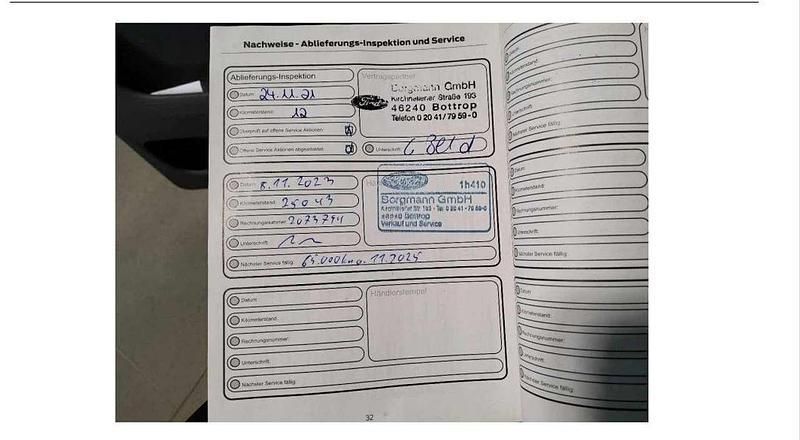 Nachweise - Ablieferungs-Inspektion und Service
Ablieferungs-Inspektion
Datum: 24.11.21
Kilometerstand: 12
Überprüft auf offene Service Aktionen:
Offene Service Aktionen abgearbeitet:
Vertragspartner
Borgmann GmbH
Ford
Kirchhellener Straße 193
46240 Bottrop
Telefon 0 20 41/79 59-0
Unterschrift:
Datum: 8.11.2023
Kilometerstand: 25043
Rechnungsnummer: 2073794
Unterschrift:
Nächster Service fällig: 11.2025
1h410
Borgmann GmbH
Kirchhellener Str. 193 - Tel. 0 20 41 - 79 59-0
46240 Bottrop
Verkauf und Service
Datum:
Kilometerstand:
Rechnungsnummer:
Unterschrift:
Nächster Service fällig:
Händlerstempel
32
Datum:
Kilometerstand:
Rechnungsnummer:
Unterschrift:
Nächster Service fällig:
Datum:
Kilometerstand:
Rechnungsnummer:
Unterschrift:
Nächster Service fällig:
Datum:
Kilometerstand:
Rechnungsnummer:
Unterschrift:
Nächster Service fällig: